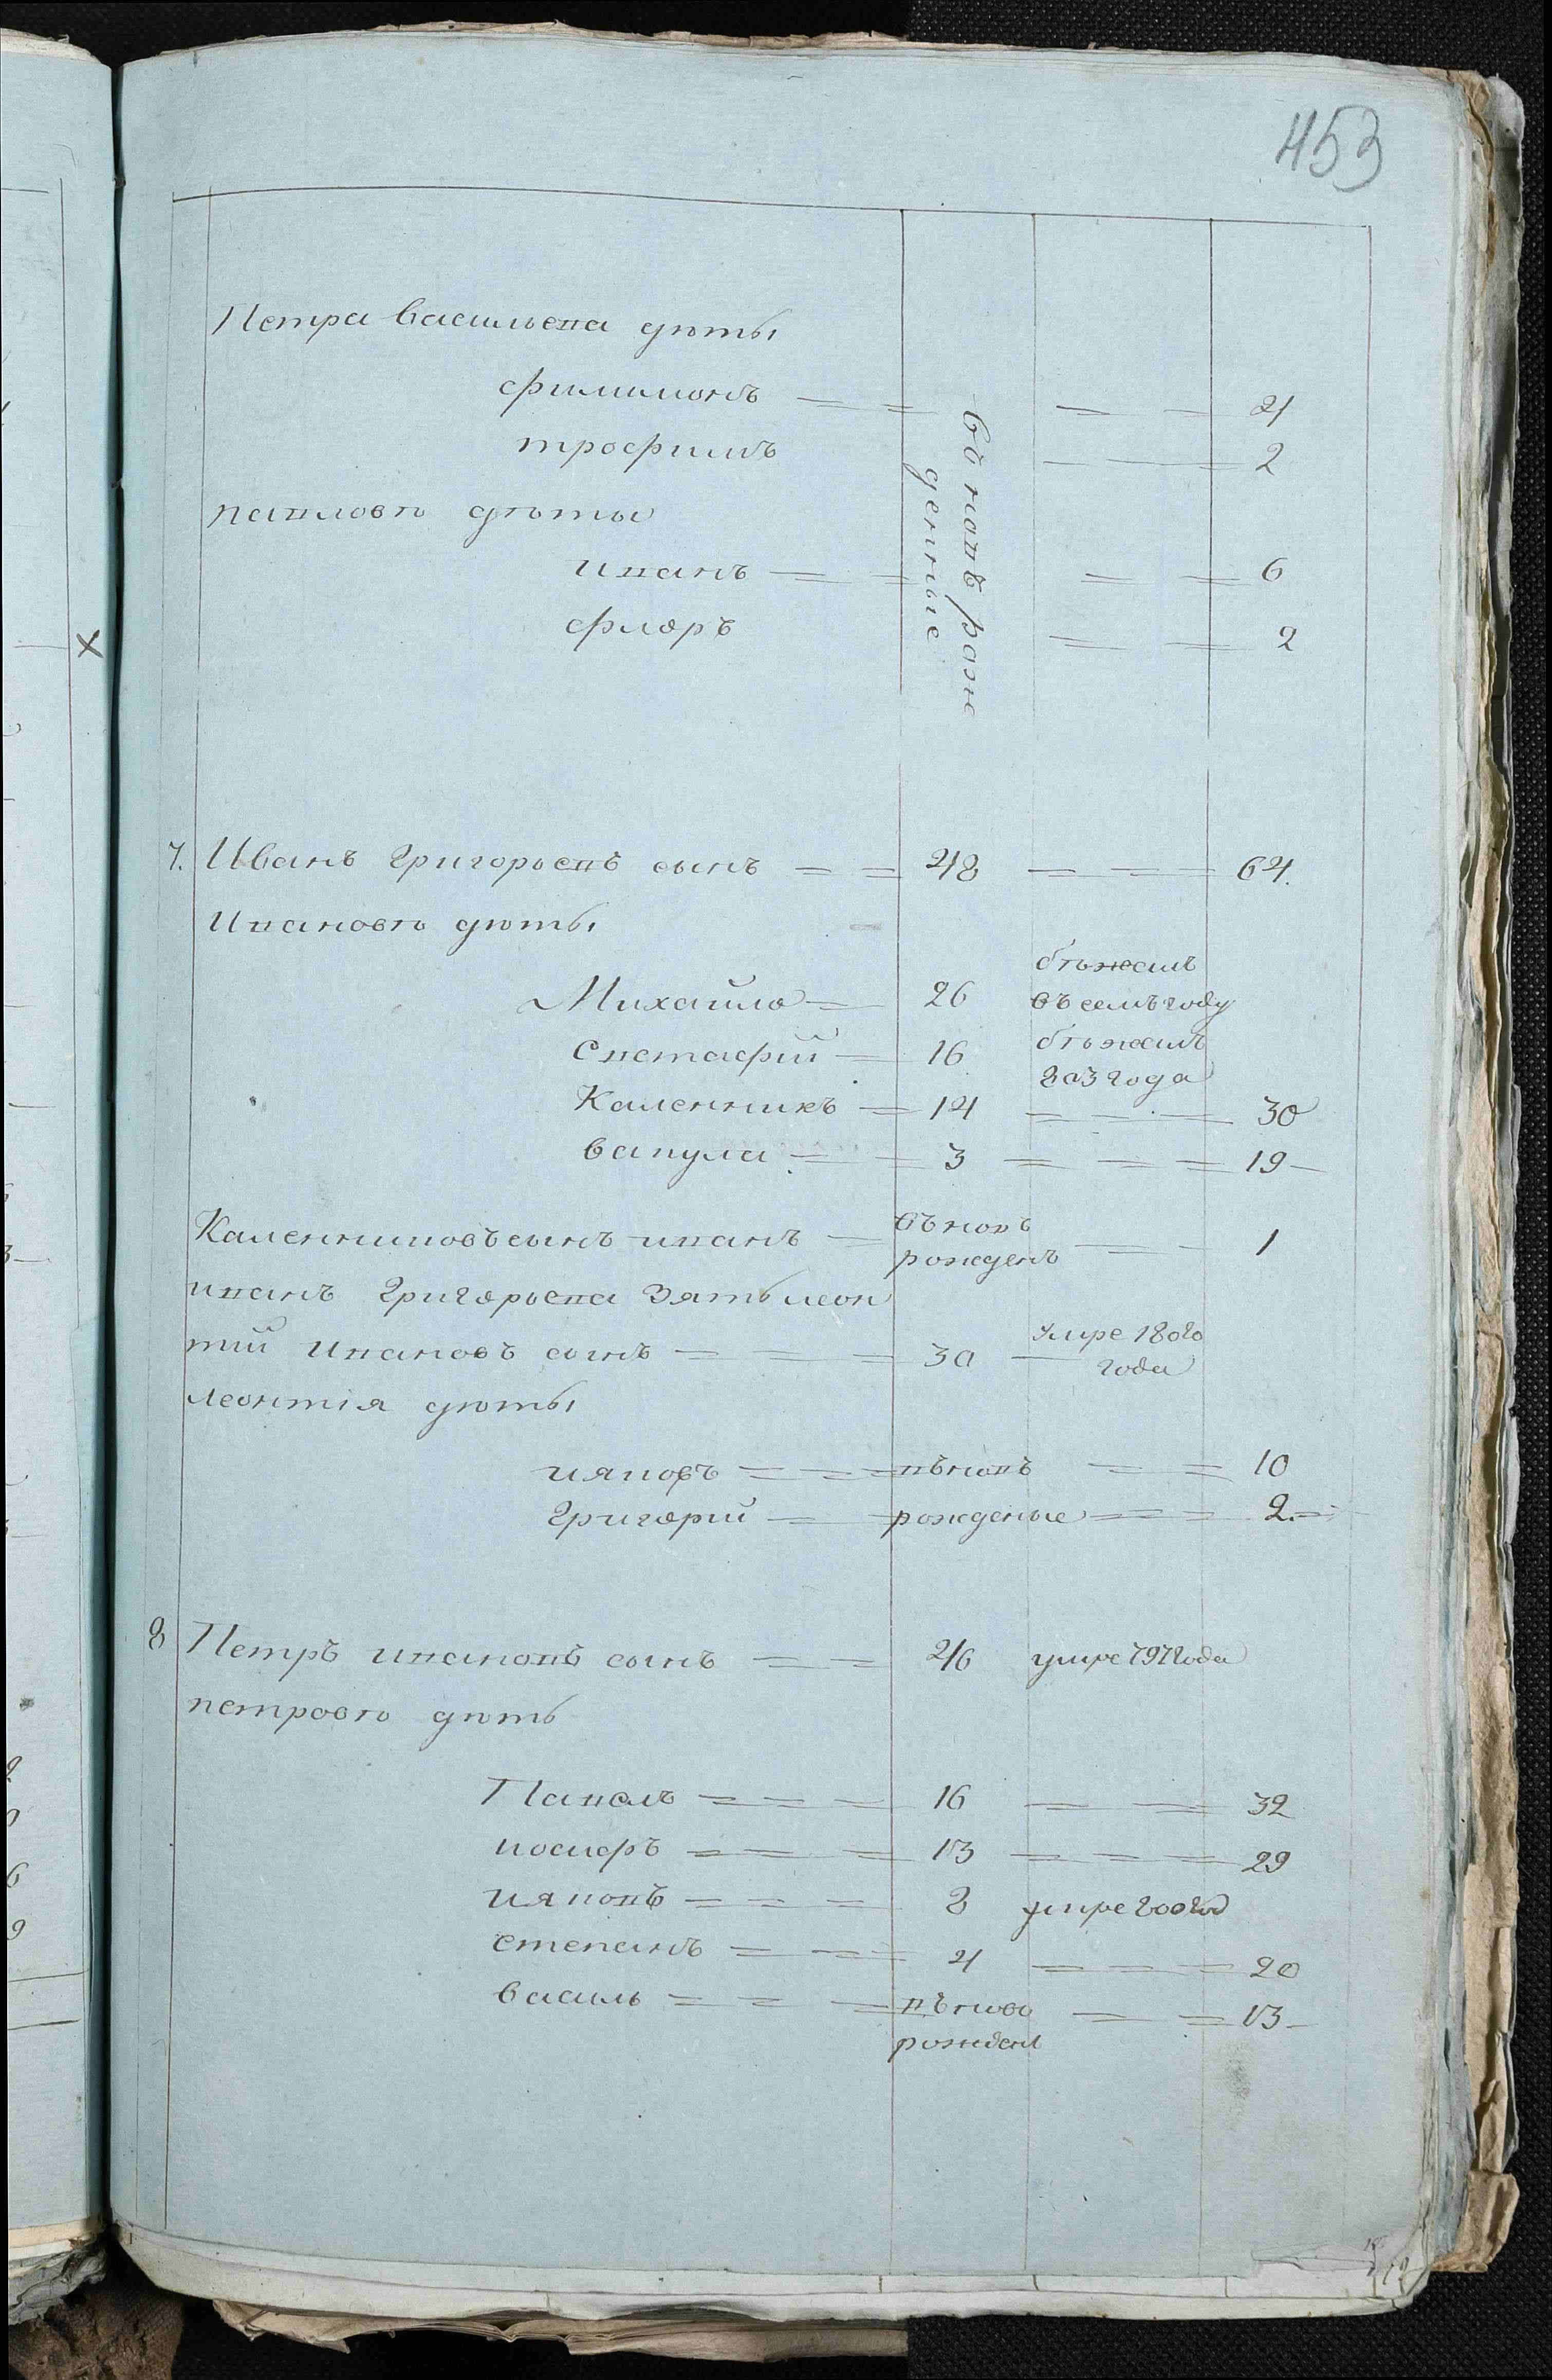 453
Петра Васильева дѣти
филимонъ = = = = 4
трофимъ — — 2
вновь рож
денные
павловы дѣти
иванъ = = = = 6
флоръ = = 2
7. Иванъ григорьевъ сынъ = = 48 = = 64.
Ивановы дѣти
Михайло = 26 бѣжалъ
въ семъ году
Евстафій = 16 бѣжалъ
803 года
Каленникъ = 14 = = 30
вавула = = 3 = = = 19
Каленниковъ сынъ иванъ = вновь
рожденъ = — 1
иванъ григорьева зять леон
тій Ивановъ сынъ = = = 30 — умре 1802
года
леонтія дѣти
ияковъ = = = вновь = = 10
григорій = рожденые = = = 2.
8 Петръ ивановъ сынъ = = 46 умре 797 года
петровы дѣти
Павелъ = = = 16 = = 32
иосифъ = = = 13 = = = 29
ияковъ = = = 8 умре 800 год
степанъ = = = 4 = = = 20
василь = = = вново
рожден = = 13